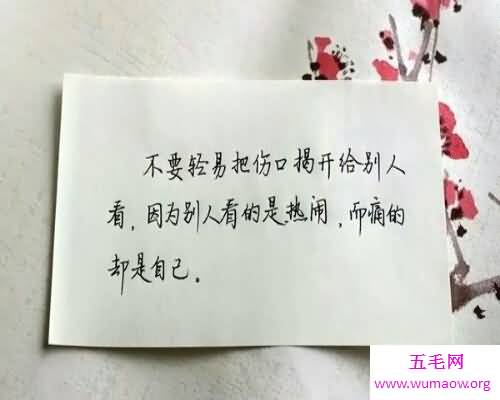 不要轻易把伤口揭开给别人
看，因为别人看的是热闹，而痛的
却是自己。
五毛网
www.wumaow.org